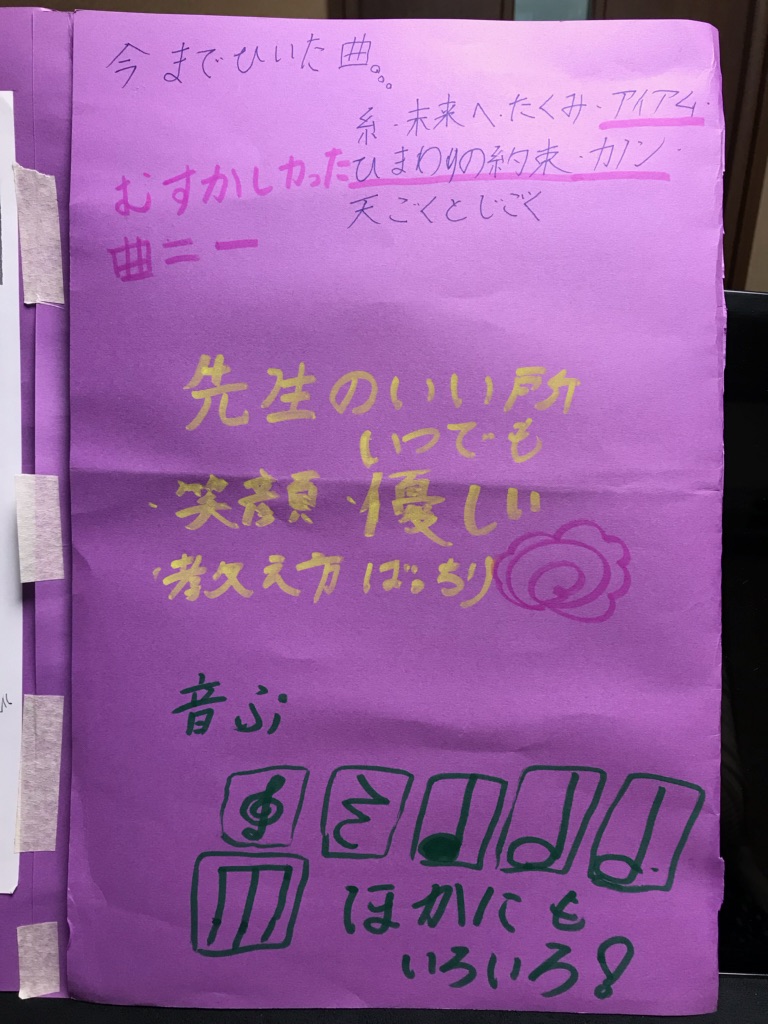 今までひいた曲。。。
糸・未来へ・たくみ・アイアム・
ひまわりの約束・カノン・
天ごくとじごく
むすかしかった
曲=ー
先生のいい所
いつでも
・笑顔・優しい
・教え方ばっちり
音ぷ
ほかにも
いろいろ!